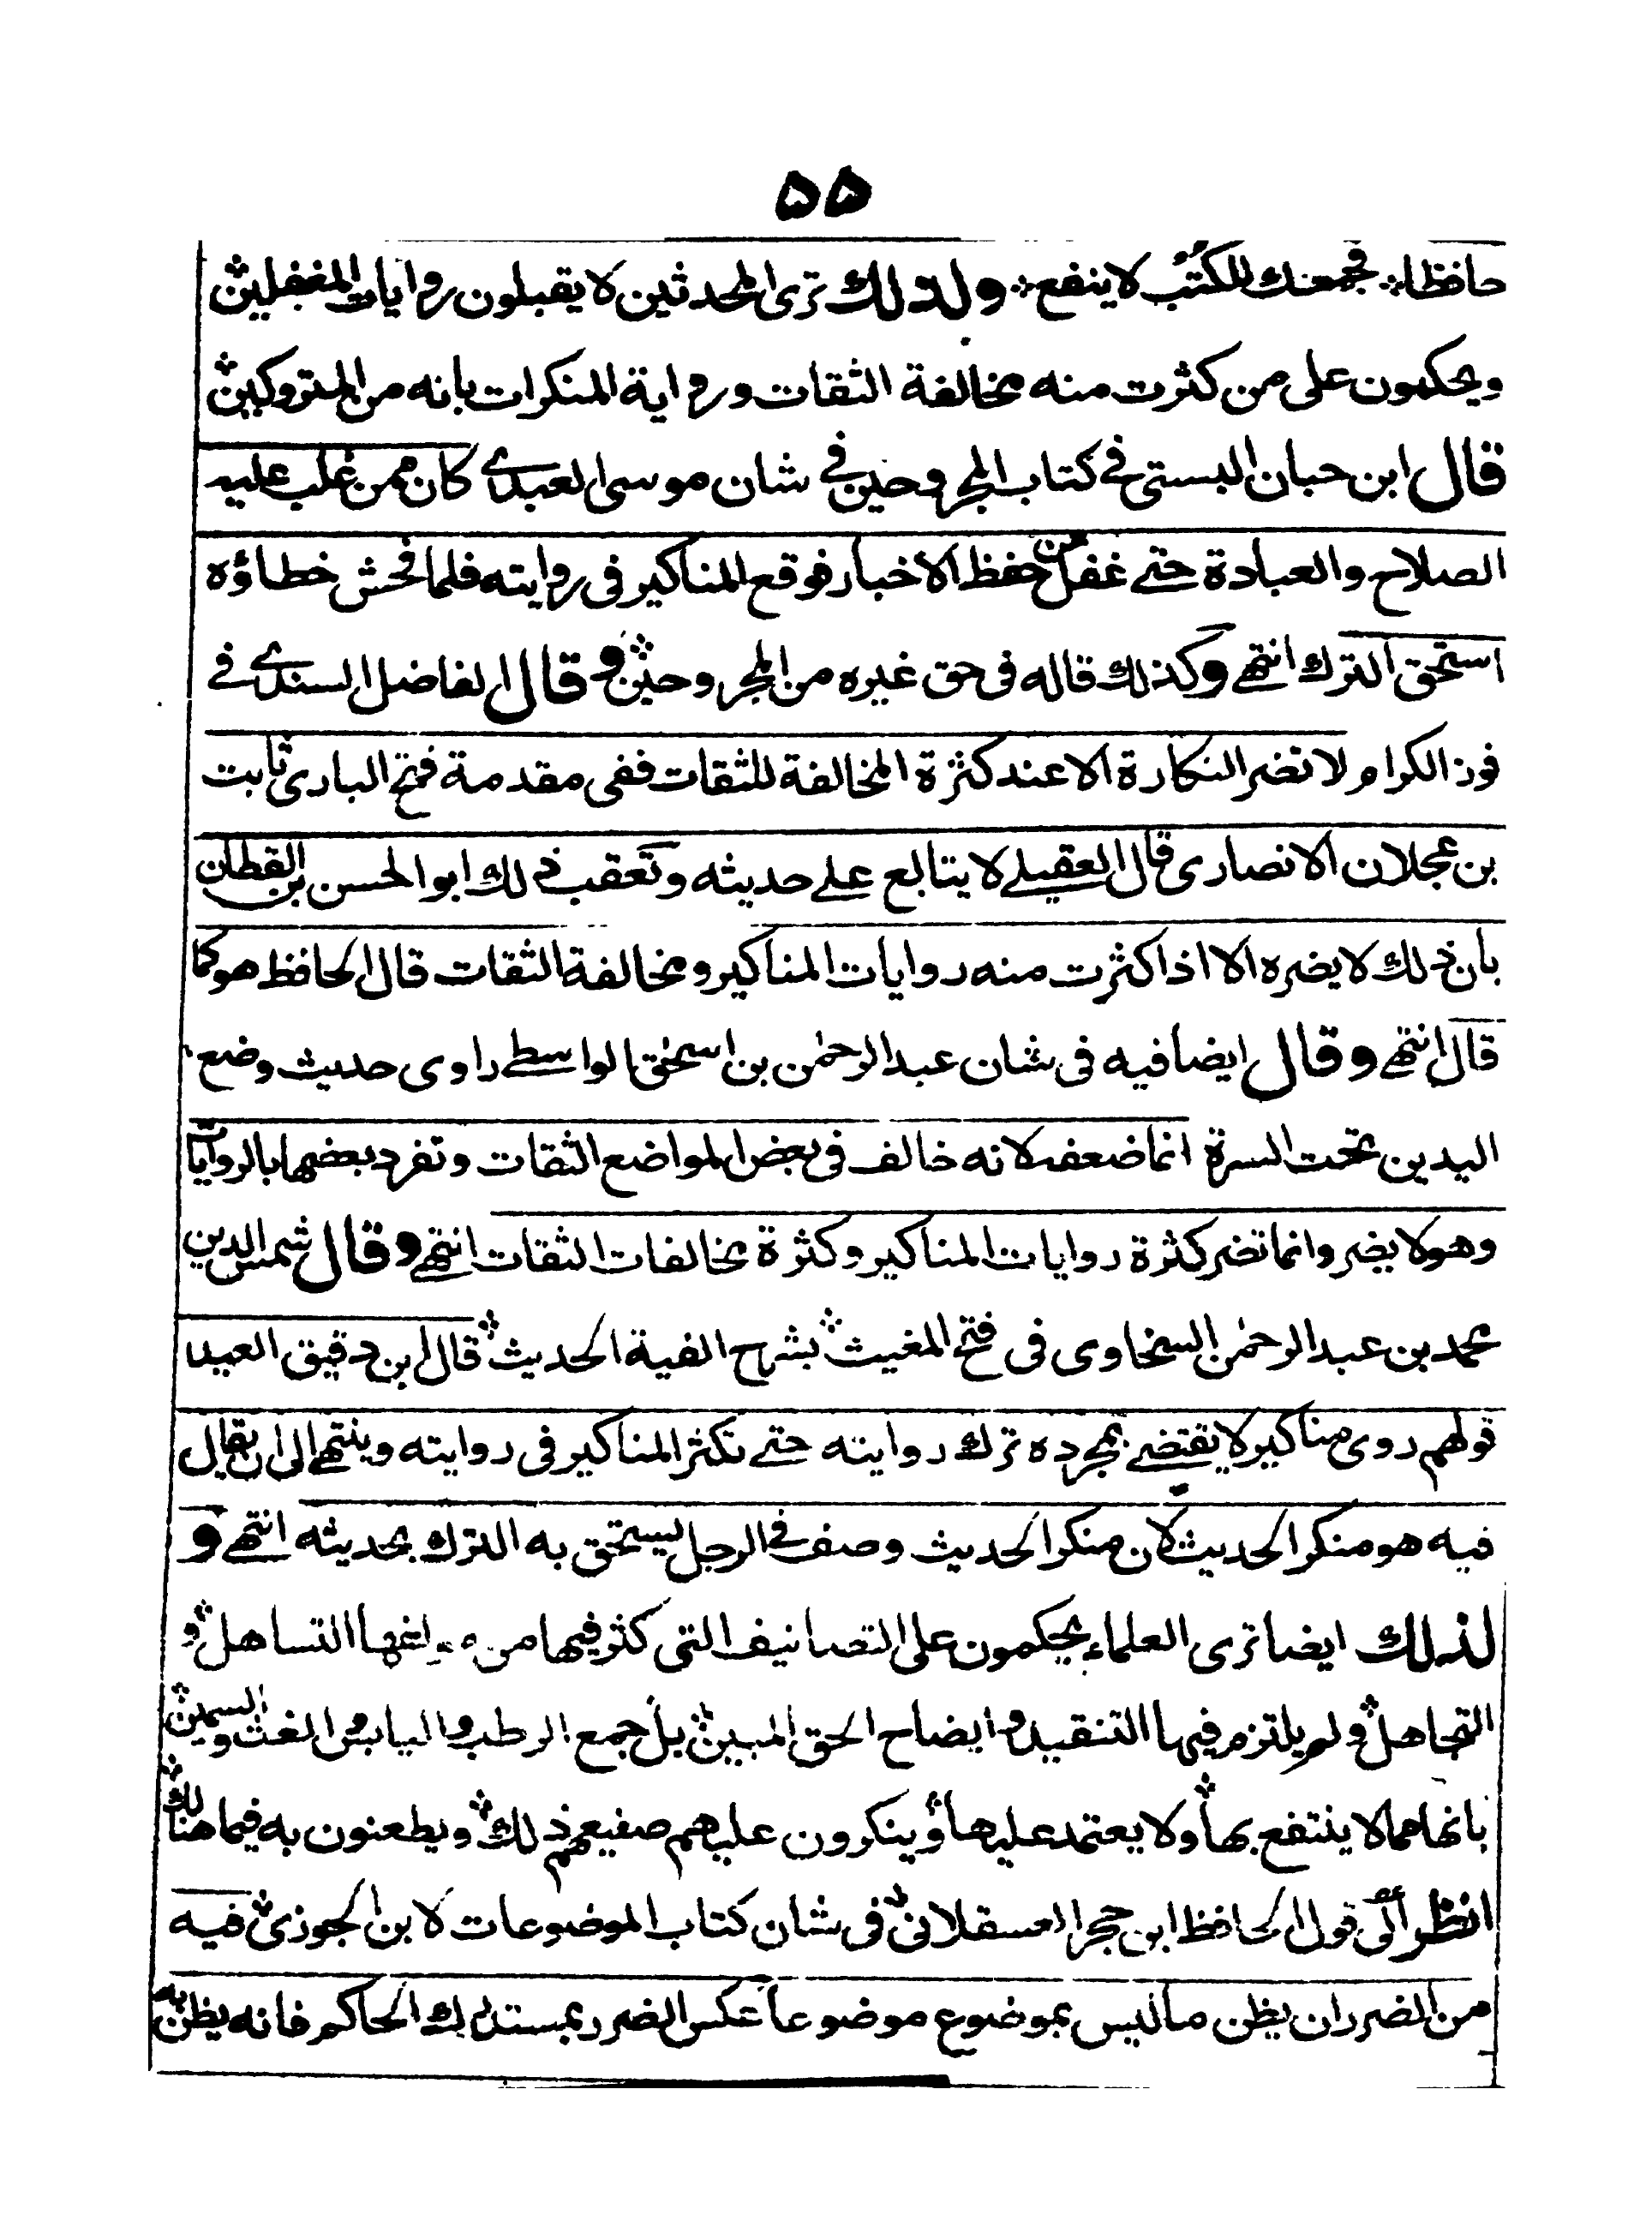 ۵۵
حافظا ∴ فجمعك للكتب لا ينفع ∴ ولذلك ترى المحدثين لا يقبلون روايات المغفلين ∴
ويحكمون على من كثرت منه مخالفة الثقات ورواية المنكرات بانه من المتروكين ∴
قال ابن حبان البستي في كتاب المجروحين في شان موسى العبدى كان ممن غلب عليه
الصلاح والعبادة حتى غفل عن حفظ الاخبار فوقع المناكير فى روايته فلما فحش خطاؤه
استحق الترك انتهى وكذلك قاله فى حق غيره من المجروحين ∴ وقال الفاضل السندى في
فوز الكرام لا تضر النكارة الا عند كثرة المخالفة للثقات ففى مقدمة فتح البارى ثابت
بن عجلان الانصارى قال العقيلى لا يتابع على حديثه وتعقب ذلك ابو الحسن بن القطان
بان ذلك لا يضره الا اذا كثرت منه روايات المناكير ومخالفة الثقات قال الحافظ هو كما
قال انتهى وقال ايضا فيه فى شان عبد الرحمن بن اسحق الواسطى راوى حديث وضع
اليدين تحت السرة انما ضعف لانه خالف فى بعض المواضع الثقات وتفرد بعضها بالروايات
وهو لا يضر وانما تضر كثرة روايات المناكير وكثرة مخالفات الثقات انتهى وقال شمس الدين
محمد بن عبد الرحمن السخاوى فى فتح المغيث ∴ بشرح الفية الحديث ∴ قال ابن دقيق العيد
قولهم روى مناكير لا يقتضى بمجرده ترك روايته حتى تكثر المناكير فى روايته وينتهى الى ان يقال
فيه هو منكر الحديث لان منكر الحديث وصف فى الرجل يستحق به الترك بحديثه انتهى و
لذلك ايضا ترى العلماء يحكمون على التصانيف التى كثر فيها من التساهل ∴ و
التجاهل ∴ ولم يلتزم فيها التنقيد وايضاح الحق المبين ∴ بل جمع الرطب واليابس والغث والسمين ∴
بانها مما لا ينتفع بها ∴ ولا يعتمد عليها ∴ وينكرون عليهم صنيعهم ذلك ∴ ويطعنون به فيما هنالك ∴
انظر الى قول الحافظ ابن حجر العسقلانى فى شان كتاب الموضوعات لابن الجوزى ∴ فيه
من الضرر ان يظن ما ليس بموضوع موضوعا عكس الضرر بمستدرك الحاكم فانه يظن به